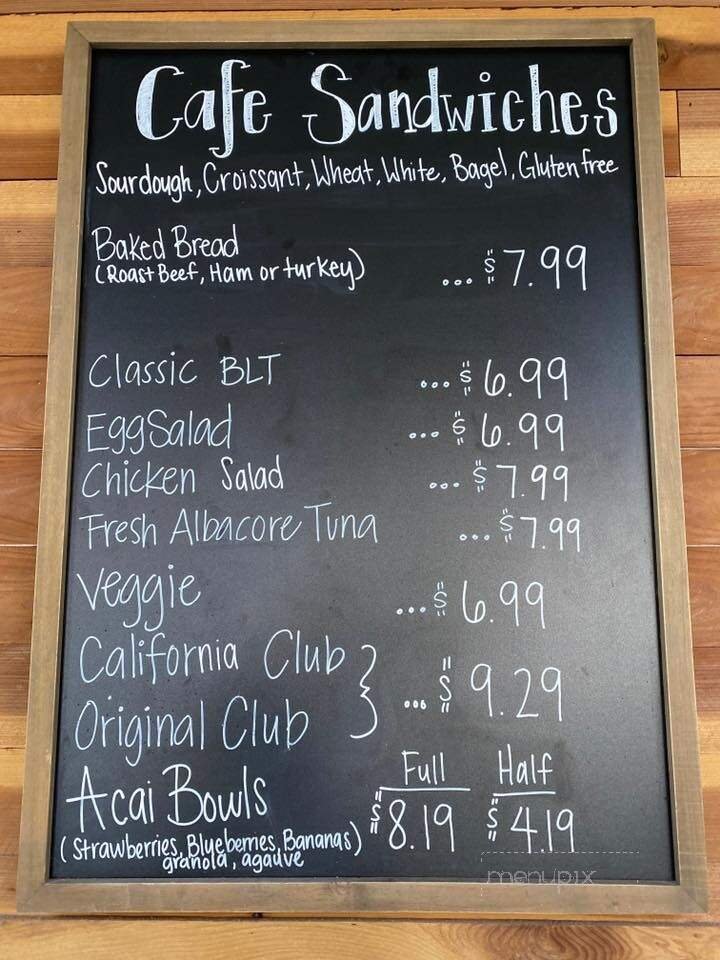 Cafe Sandwiches
Sourdough, Croissant, Wheat, White, Bagel, Gluten free
Baked Bread
(Roast Beef, Ham or turkey) ... $7.99
Classic BLT ... $6.99
Egg Salad ... $6.99
Chicken Salad ... $7.99
Fresh Albacore Tuna ... $7.99
Veggie ... $6.99
California Club
Original Club } ... $9.29
Full Half
Acai Bowls $8.19 $4.19
(Strawberries, Blueberries, Bananas)
granola, agauve
menupix